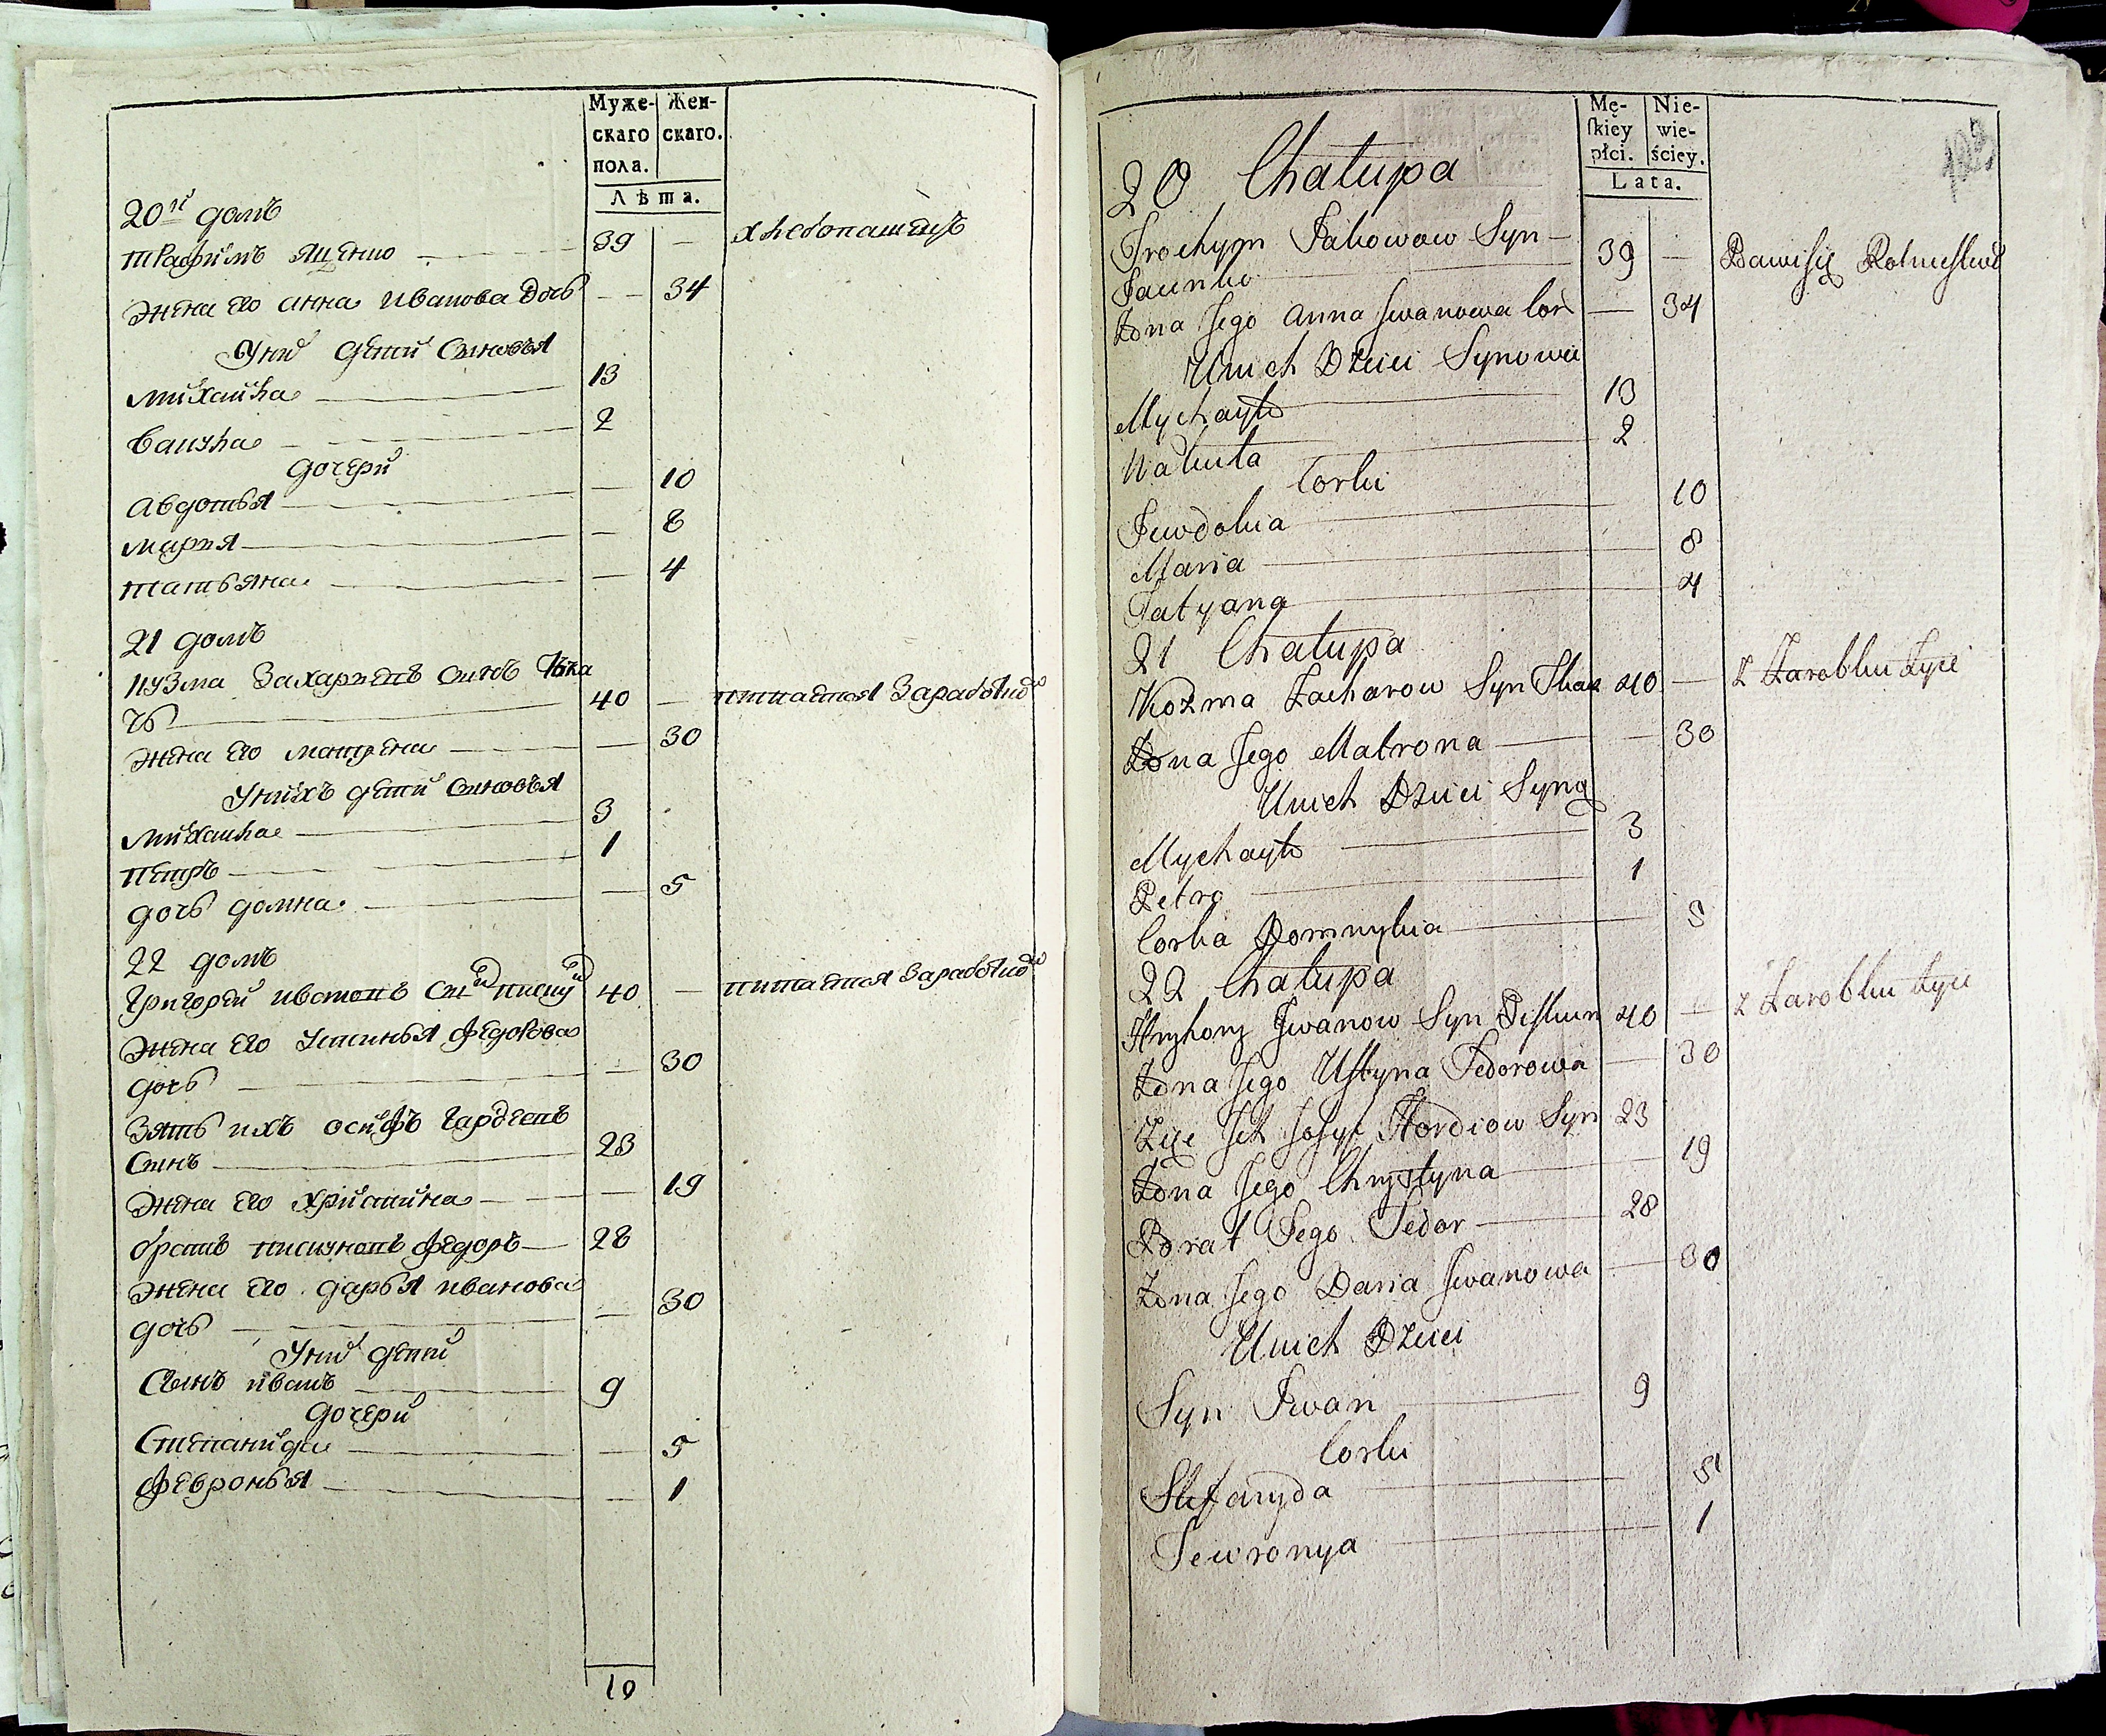 Муже-
скаго
пола.
Жен-
скаго.
Лѣта.
20й домъ
Трафимъ Яценко 39 — хлебопашецъ
Жена его Анна Иванова дочь — 34
У них детей сыновья
Михайла 13
Вакула 2
дочери
Авдотья — 10
Марья — 8
Татьяна — 4
21 домъ
Кузма Захариевъ сынъ Тка
чь 40 — питается заработкою
Жена его Матрена — 30
У нихъ детей сыновья
Михайла 3
Петръ 1
дочь Домна — 5
22 домъ
Григорей Ивановъ сын 40 — питается заработкою
Жена его Устинья Федорова
дочь — 30
Зять ихъ Осифъ Гардеевъ
сынъ 23
Жена его Христина — 19
братъ Федоръ 28
Жена его Дарья Иванова
дочь — 30
У них детей
Сынъ Иванъ 9
дочери
Степанида — 5
Февронья — 1
10
Mę-
skiey
płci.
Nie-
wie-
ściey.
Lata.
20 Chałupa
Trochym Jakowow Syn
Jacenko 39 — Bawi się Rolnictwe
Żona Jego Anna Jwanowa Cor — 34
U nich Dzieci Synowie
Mychayło 13
Wakuła 2
Corki
Jewdokia 10
Maria 8
Tatyana 4
21 Chałupa
Kozma Zacharow Syn Tkac 40 — z Zarobku żyie
Żona Jego Matrona — 30
U nich Dzieci Syny
Mychayło 3
Petro 1
Corka Domnykia 5
22 Chałupa
Hryhory Jwanow Syn Piskun 40 — z Zarobku żyie
Żona Jego Ustyna Fedorowa — 30
Zięć Ich Josyf Hordiow Syn 23
Żona Jego Chrystyna 19
Brat Jego Fedor 28
Żona Jego Daria Jwanowa — 30
U nich Dzieci
Syn Jwan 9
Corki
Stefanyda 5
Fewronya 1